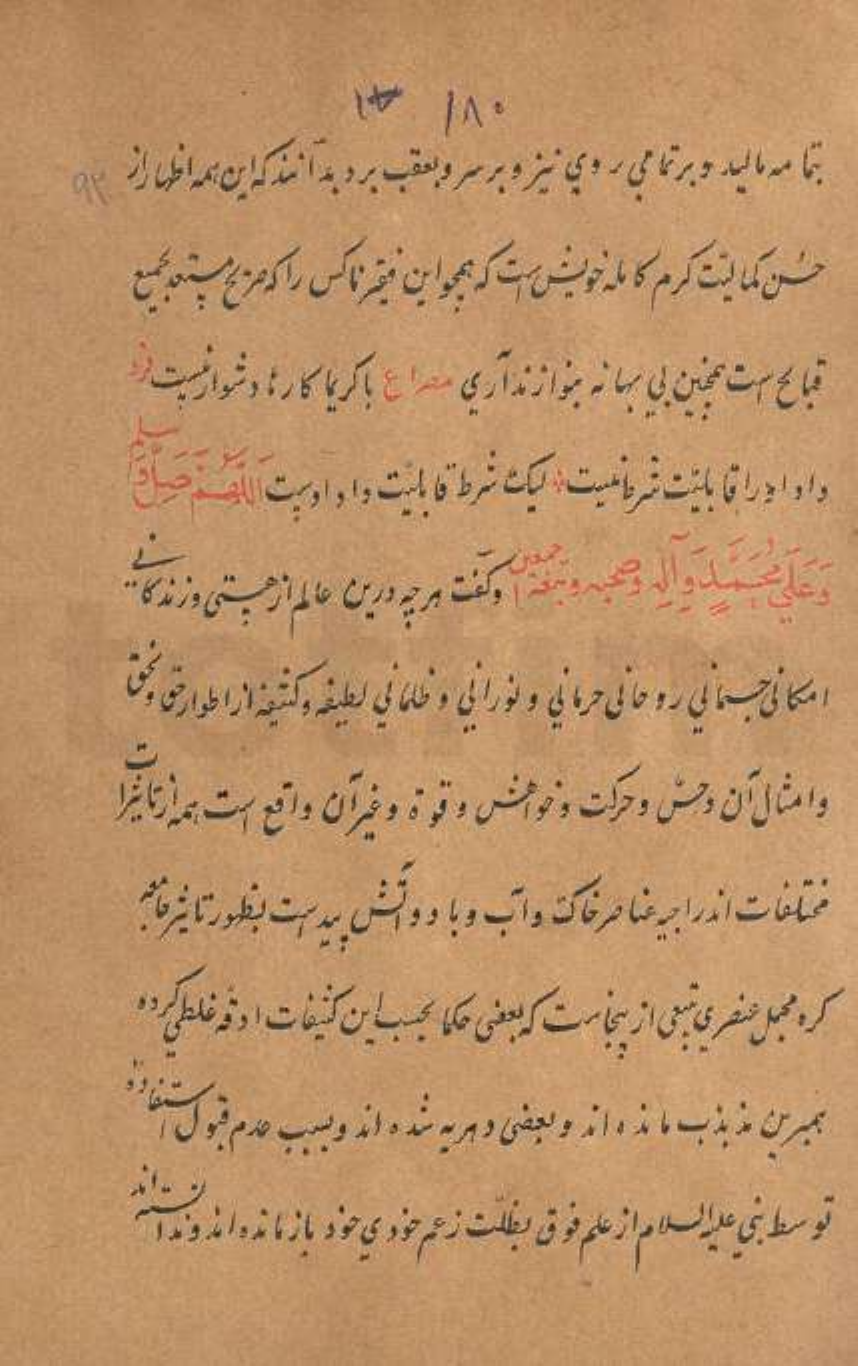 ۱۸۰
۹۲
بتمامه مالید و بر تمامی روی نیز و بر سر و بعقب برد بدآنند که این همه اظهار از
حسُن کمالیّت کرم کامله خویش است که همچو این فقیر ناکس را که صریح مستعد بجمیع
قبایح است همچنین بی بهانه بنوازند آری مصراع باکریما کارها دشوار نیست فرد
داد او را قابلیّت شرط نیست لیک شرط قابلیّت داد اوست اللّهمّ صلّ وسلم
وَعَلَي مُحَمَّدٍ وآلِه وصحبه وتبعه اجمعین وگفت هرچه درین عالم از هستی و زندگانی
امکانی جسمانی روحانی حرمانی و نورانی و ظلمانی لطیفه و کثیفه از اطوار حق و نحق
وامثال آن وحسّ و حرکت و خواهش و قوة و غیر آن واقع است همه از تاثیرات
مختلفات اند عناصر خاک و آب و باد و آتش پیدست بظهور تاثیر جامعه
کره مجمل عنصری تبعی از پنجاست که بعضی حکما بحسب این کثیفات ادقه غلطی کرده
بمبرین مذبذب مانده اند و بعضی دهریه شده اند و بسبب عدم قبول استفاده
توسط نبی علیه السلام از علم فوق بظلّت زعم خودی خود بازمانده اند و ندانسته اند